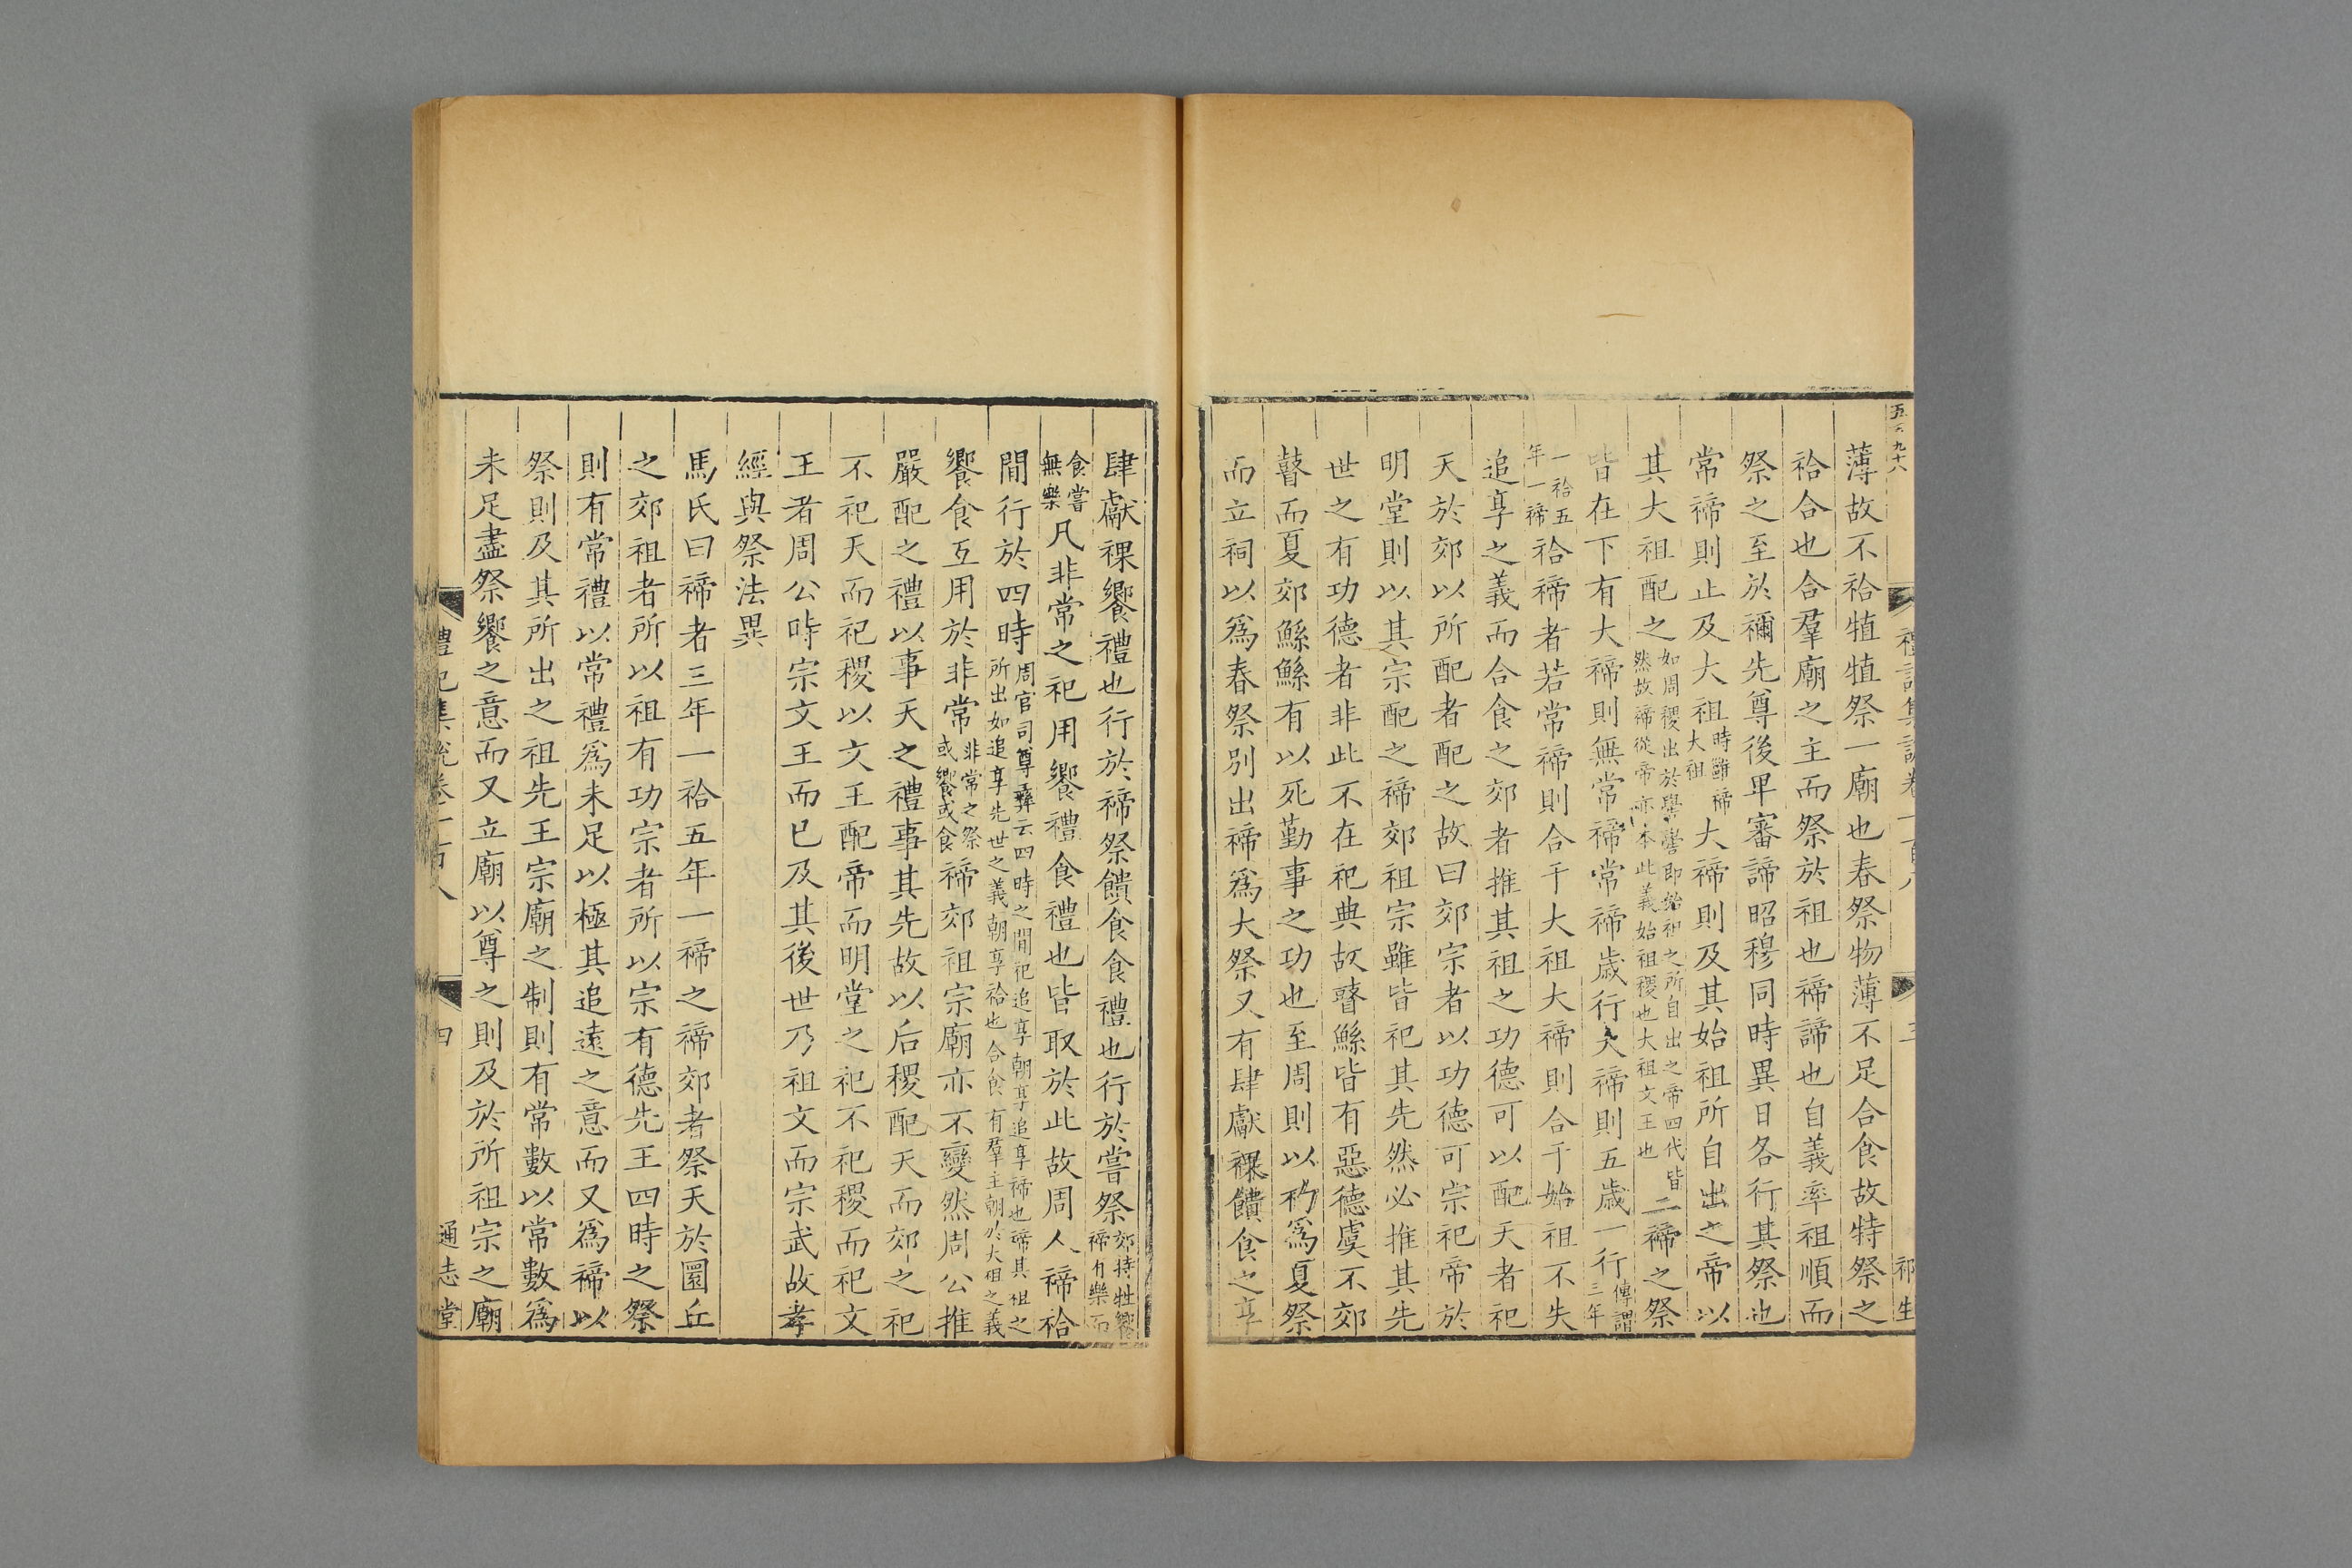 薄故不祫犆犆祭一廟也春祭物薄不足合食故特祭之
祫合也合羣廟之主而祭於祖也禘諦也自義率祖順而
祭之至於禰先尊後卑審諦昭穆同時異日各行其祭也
常禘則止及大祖時雖禘大祖大禘則及其始祖所自出之帝以
其大祖配之如周稷出於嚳嚳即始祖之所自出之帝四代皆然故禘從帝亦本此義始祖稷也大祖文王也二禘之祭
皆在下有大禘則無常禘常禘歲行大禘則五歲一行傳謂三年
一祫五年一禘祫禘者若常禘則合于大祖大禘則合于始祖不失
追享之義而合食之郊者推其祖之功德可以配天者祀
天於郊以所配者配之故曰郊宗者以功德可宗祀帝於
明堂則以其宗配之禘郊祖宗雖皆祀其先然必推其先
世之有功德者非此不在祀典故瞽鯀皆有惡德虞不郊
瞽而夏郊鯀鯀有以死勤事之功也至周則以礿爲夏祭
而立祠以爲春祭別出禘爲大祭又有肆獻祼饋食之享
肆獻祼饗禮也行於禘祭饋食食禮也行於嘗祭郊特牲饗禘有樂而
食嘗無樂凡非常之祀用饗禮食禮也皆取於此故周人禘祫
間行於四時周官司尊彝云四時之間祀追享朝享追享禘也禘其祖之所出如追享先世之義朝享祫也合食有羣主朝於大祖之義
饗食互用於非常非常之祭或饗或食禘郊祖宗廟亦不變然周公推
嚴配之禮以事天之禮事其先故以后稷配天而郊之祀
不祀天而祀稷以文王配帝而明堂之祀不祀稷而祀文
王者周公時宗文王而已及其後世乃祖文而宗武故孝
經與祭法異
馬氏曰禘者三年一祫五年一禘之禘郊者祭天於圜丘
之郊祖者所以祖有功宗者所以宗有德先王四時之祭
則有常禮以常禮爲未足以極其追遠之意而又爲禘以
祭則及其所出之祖先王宗廟之制則有常數以常數爲
未足盡祭饗之意而又立廟以尊之則及於所祖宗之廟
禮記集說卷一百八
四
通志堂